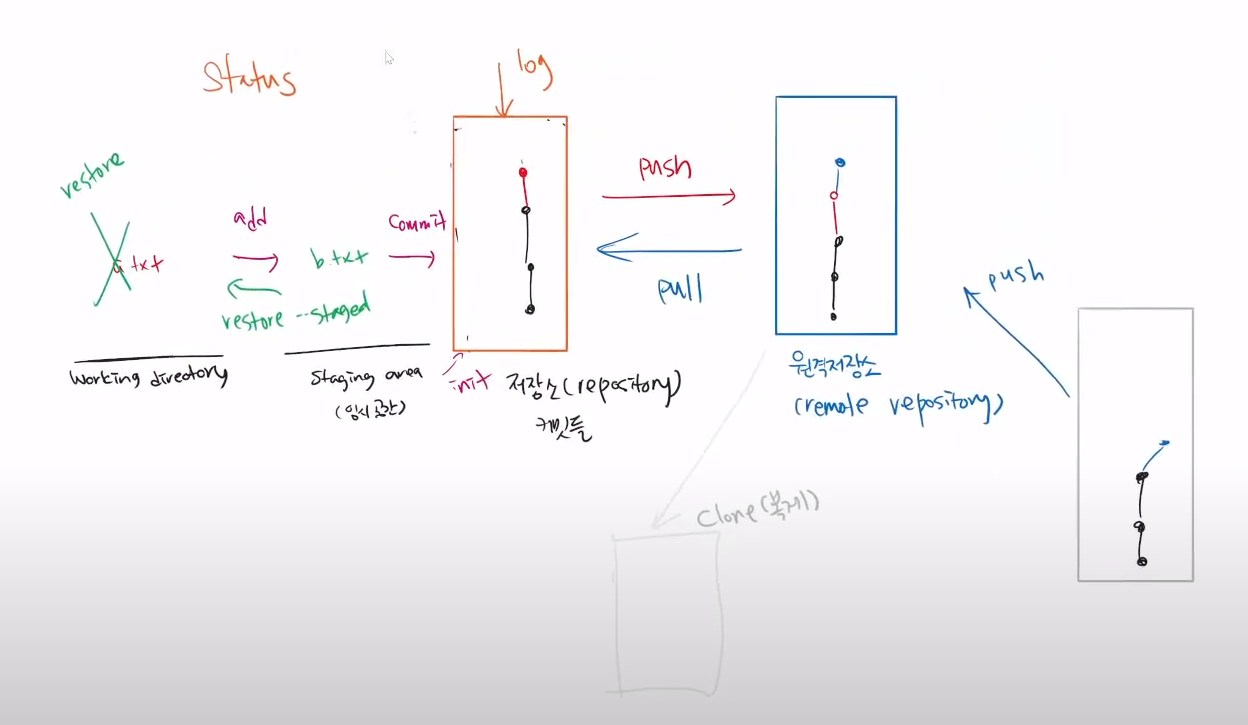 Status
log
restore
add
commit
push
a.txt
b.txt
restore --staged
pull
push
working directory
Staging area
(임시공간)
init
저장소(repository)
커밋들
원격저장소
(remote repository)
Clone(복제)